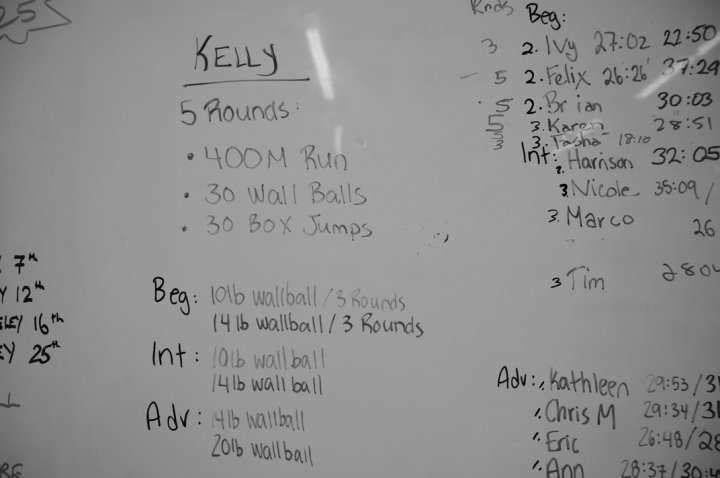 25
7th
12th
16th
25th
KELLY
5 Rounds:
• 400M Run
• 30 Wall Balls
• 30 BOX Jumps
Beg: 10lb wallball / 3 Rounds
14 lb wallball / 3 Rounds
Int: 10lb wall ball
14lb wall ball
Adv: 14lb wallball
20lb wallball
Rnds Beg:
3 2. IVy 27:02 22:50
5 2. Felix 26:26 37:29
5 2. Brian 30:03
5 3. Karen 28:51
3 3. Tasha 18:10
Int: 2. Harrison 32:05
3. Nicole 35:09 /
3 Marco 26
3 Tim 280
Adv: Kathleen 29:53 / 3
Chris M 29:34 / 3
Eric 26:48 / 28
Ann 28:37 / 30:4